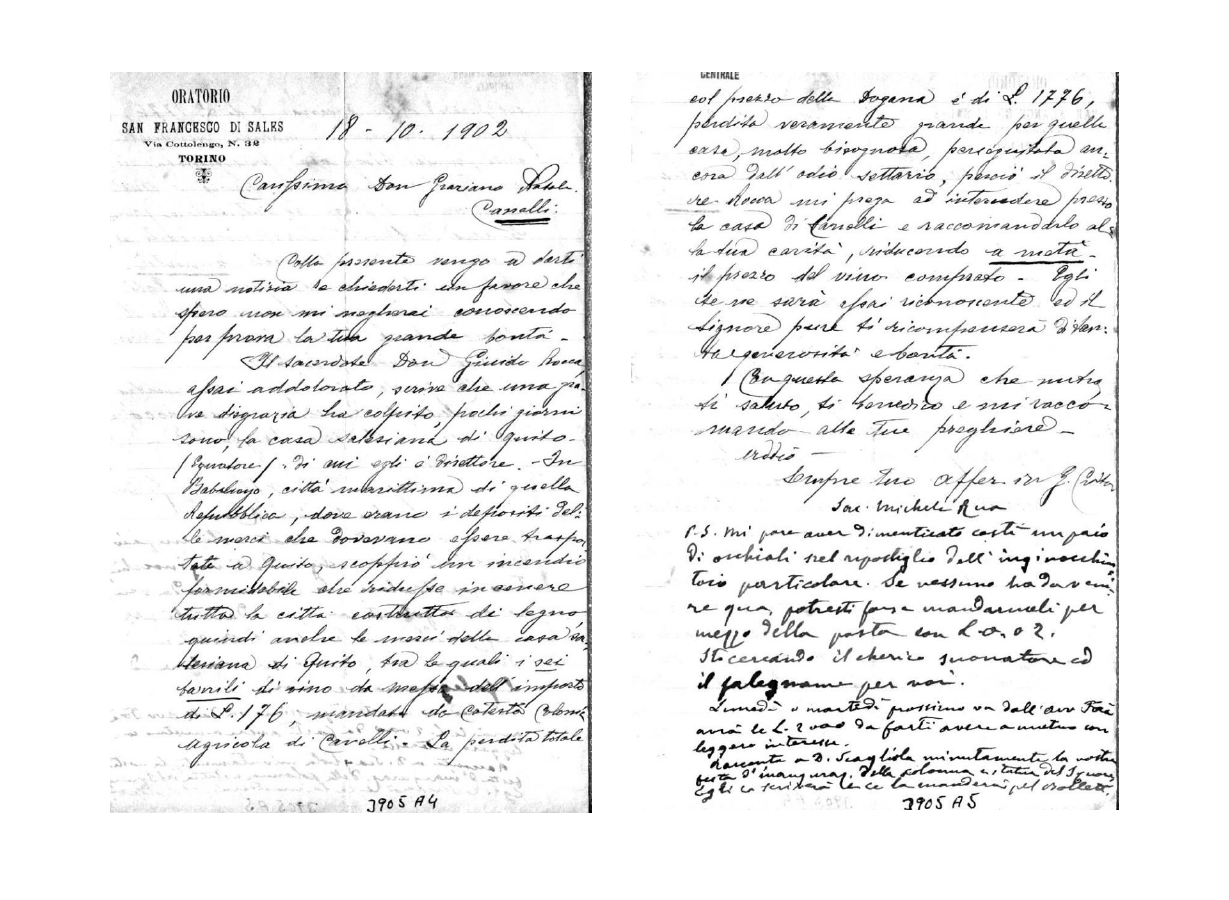 ORATORIO
SAN FRANCESCO DI SALES
Via Cottolengo, N. 32
TORINO
18 - 10. 1902
Carissimo Don Graziano Natale.
Canelli.
Colla presente vengo a darti
una notizia e chiederti un favore che
spero non mi negherai conoscendo
per prova la tua grande bontà -
Il sacerdote Don Guido Rocca,
assai addolorato, scrive che una gra-
ve disgrazia ha colpito, pochi giorni
sono, la casa salesiana di Quito -
(Equatore), di cui egli è direttore. - In
Babahoyo, città marittima di quella
Repubblica, dove erano i depositi del-
le merci che dovevano essere traspor
tate a Quito, scoppiò un incendio
formidabile che ridusse in cenere
tutta la città costrutta di legno
quindi anche le merci della casa sa-
lesiana di Quito, tra le quali i sei
barrili di vino da messa dell'importo
di L. 176, mandato da cotesta Colonia
Agricola di Canelli. La perdita totale
3905 A4
CENTRALE
col prezzo della Dogana è di L. 1776,
perdita veramente grande per quella
casa, molto bisognosa, perseguitata an-
cora dall'odio settario, perciò il diretto
re Rocca mi prega ad intercedere presso
la casa di Canelli e raccomandarlo al-
la tua carità, riducendo a metà -
il prezzo del vino comprato - Egli
te ne sarà assai riconoscente ed il
Signore pure ti ricompenserà di tan-
ta generosità e bontà.
Con questa speranza che nutro,
ti saluto, ti benedico e mi racco-
mando alle tue preghiere -
Sempre tuo affez in G. Cristo
Sac. Michele Rua
P.S. Mi pare aver dimenticato costì un paio
di occhiali nel ripostiglio dell'inginocchia
toio particolare. Se nessuno ha da veni-
re qua, potresti forse mandarmeli per
mezzo della posta con L 0. 02.
Sto cercando il cherico suonatore ed
il falegname per voi.
Lunedì o martedì prossimo va dall'avv
avrà le L. 2000 da farti avere a mutuo con
leggero interesse.
Racconta a D. Scagliola minutamente la vostra
festa d'inauguraz. della colonna e statua del
Egli la scriverà e ce la manderà pel Bollett.
3905 A5